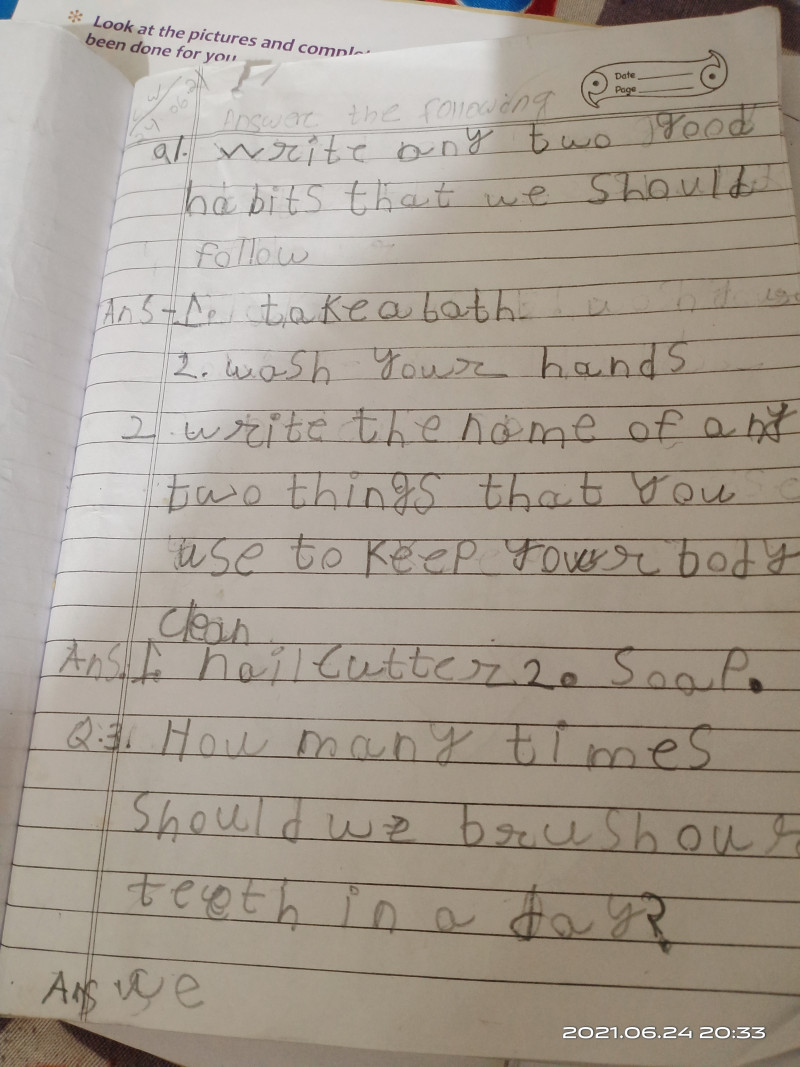 Look at the pictures and comple
been done for you
Date
Page
Answer the following
Q1. Write any two good
habits that we should
follow
Ans - 1. take a bath
2. wash your hands
2. write the name of any
two things that you
use to keep your body
clean
Ans. 1. nail cutter 2. Soap.
Q.3. How many times
should we brush our
teeth in a day?
Ans we
2021.06.24 20:33